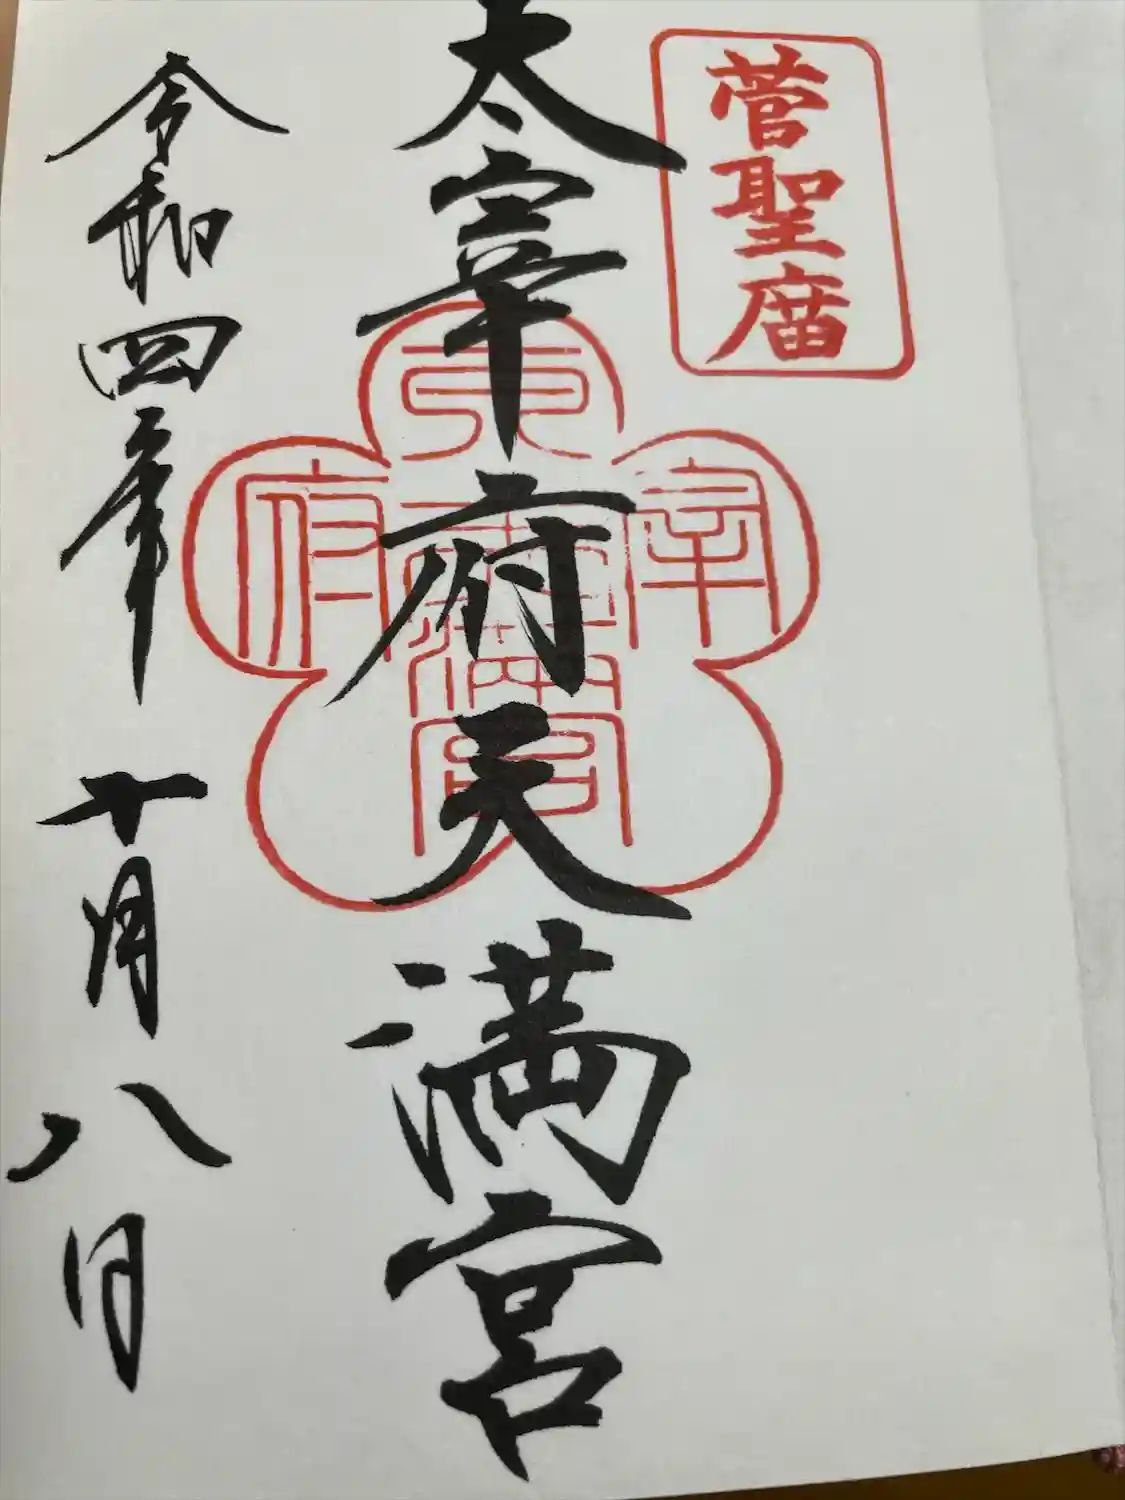 菅聖庿
太宰府天満宮
宰
府
天満宮
令和四年十月八日